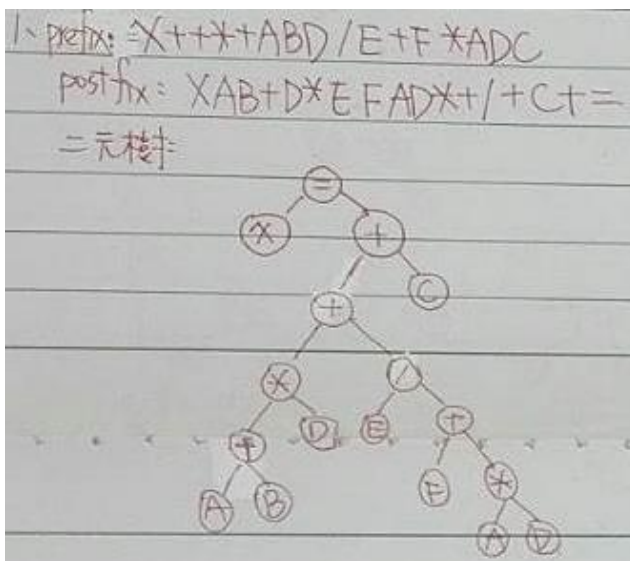 1、prefix: =X++*+ABD/E+F*ADC
postfix: XAB+D*EFAD*+/+C+=
二元樹:
=
X +
+ C
* /
+ D E +
A B F *
A D